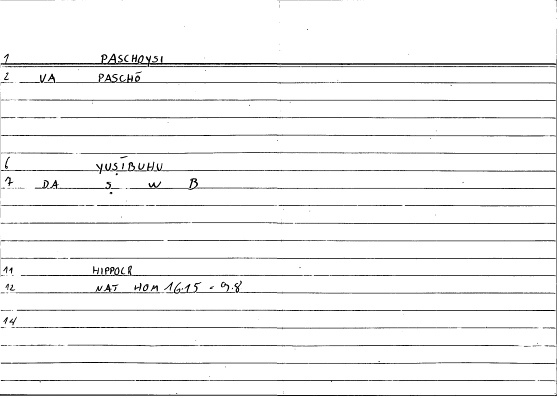 1 PASCHOYSI
2 VA PASCHŌ
6 YUṢĪBUHU
7 DA Ṣ W B
11 HIPPOCR
12 NAT HOM 16.15 - 9.8
14